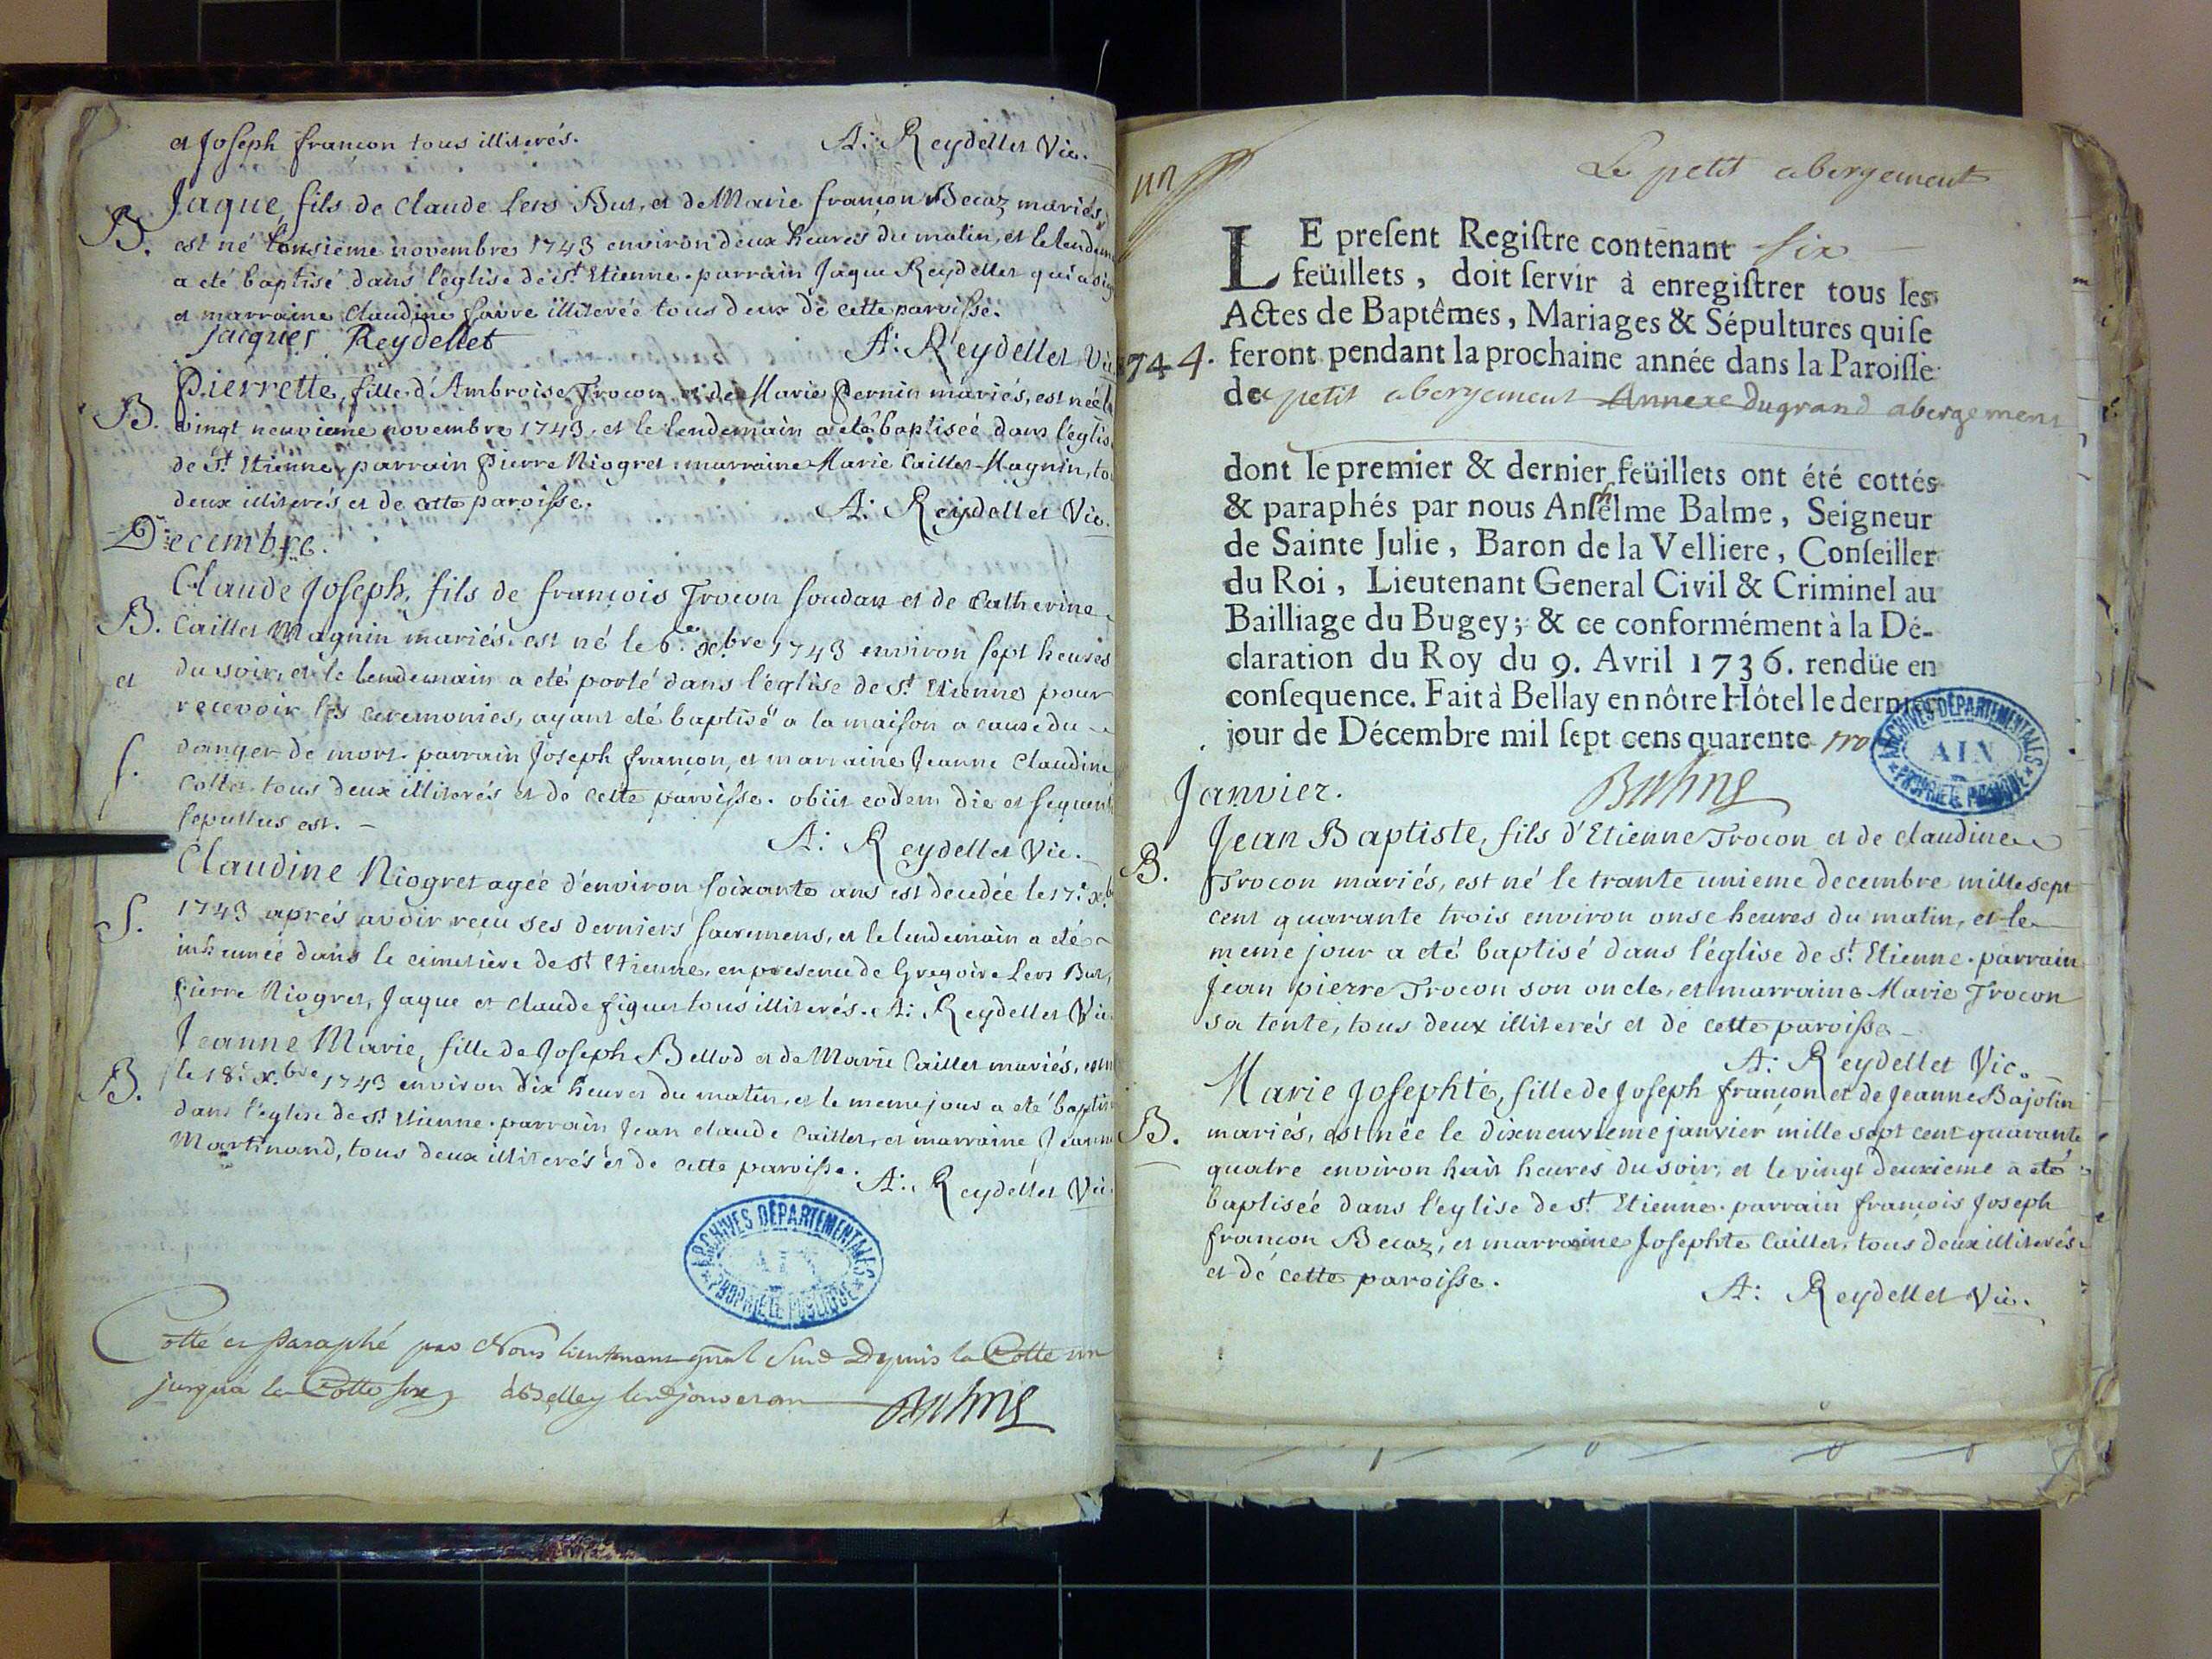 et Joseph françon tous illiterés. A: Reydellet Vic.
Jaque, fils de Claude Lers But, et de Marie françon Becaz mariés,
B. est né l'onsieme novembre 1743 environ deux heures du matin, et le lendem
a eté baptisé dans l'église de St Etienne. parrain Jaque Reydellet qui a sig
et marraine Claudine favre illiterée tous deux de cette paroisse.
Jacques Reydellet A: Reydellet Vic
Pierrette, fille d'Ambroise Trocon et de Marie Pernin mariés, est née le
B. vingt neuvieme novembre 1743, et le lendemain a eté baptiseé dans l'eglis
de St Etienne, parrain Pierre Niogret, marraine Marie Caillet-Magnin, to
deux illiterés et de cette paroisse. A: Reydellet Vic.
Decembre.
Claude Joseph, fils de françois Trocon soudan et de Catherine
B. Caillet Magnin mariés, est né le 6.e xbre 1743 environ sept heures
et du soir, et le lendemain a eté porté dans l'église de St Etienne pour
recevoir les ceremonies, ayant eté baptisé a la maison a cause du
S. danger de mort. parrain Joseph françon, et marraine Jeanne Claudine
Collet tous deux illiterés et de cette paroisse. obiit eodem die et sequenti
sepultus est. A: Reydellet Vic.
Claudine Niogret ageé d'environ soixante ans est decedée le 17.e xb
S. 1743 aprés avoir reçu ses derniers sacremens, et le lendemain a eté
inhumée dans le cimetière de St Etienne, en presence de Gregoire Lers But,
Pierre Niogret, Jaque et Claude figuet tous illiterés. A: Reydellet Vic
Jeanne Marie, fille de Joseph Bellod et de Marie Caillet mariés, est n
B. le 18.e xbre 1743 environ dix heures du matin, et le meme jour a eté baptis
dans l'eglise de St Etienne. parrain Jean Claude Caillet, et marraine Jeann
Martinand, tous deux illiterés et de cette paroisse. A: Reydellet Vic
ARCHIVES DÉPARTEMENTALES
AIN
PROPRIÉTÉ PUBLIQUE
Cotté et Paraphé par Nous lieutenant gnal Depuis la Cotte un
jusqu'a la Cotte six a Belley les jour et an Balme
un Le petit abergement
LE present Registre contenant six
feüillets, doit servir à enregistrer tous les
Actes de Baptêmes, Mariages & Sépultures qui se
1744. feront pendant la prochaine année dans la Paroisse
de petit abergement Annexe du grand abergement
dont le premier & dernier feüillets ont été cottés
& paraphés par nous Anshelme Balme, Seigneur
de Sainte Julie, Baron de la Velliere, Conseiller
du Roi, Lieutenant General Civil & Criminel au
Bailliage du Bugey; & ce conformément à la Dé-
claration du Roy du 9. Avril 1736. rendüe en
consequence. Fait à Bellay en nôtre Hôtel le dernier
jour de Décembre mil sept cens quarente tro
ARCHIVES DÉPARTEMENTALES
AIN
PROPRIÉTÉ PUBLIQUE
Balme
Janvier.
Jean Baptiste, fils d'Etienne Trocon et de Claudine
B. Trocon mariés, est né le trante unieme decembre mille sept
cent quarante trois environ onse heures du matin, et le
meme jour a eté baptisé dans l'église de St. Etienne. parrain
Jean pierre Trocon son oncle, et marraine Marie Trocon
sa tente, tous deux illiterés et de cette paroisse
A: Reydellet Vic.
Marie Josephte, fille de Joseph françon et de Jeanne Bajolin
B. mariés, est née le dixneuvieme janvier mille sept cent quarante
quatre environ huit heures du soir, et le vingt deuxieme a eté
baptiseé dans l'église de St Etienne. parrain françois Joseph
françon Becaz, et marraine Josephte Caillet, tous deux illiterés
et de cette paroisse.
A: Reydellet Vic.